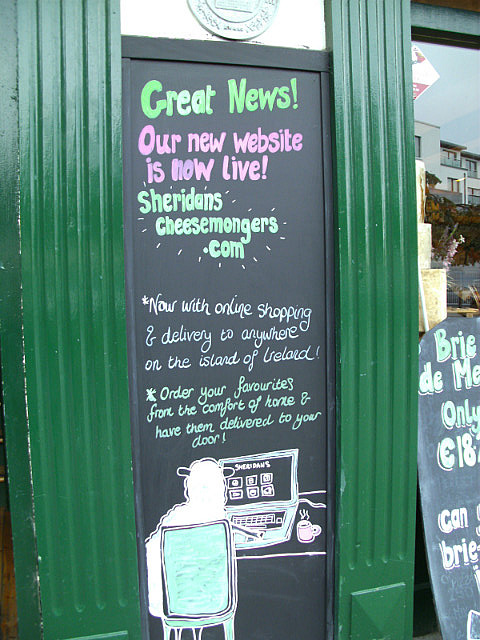 Great News!
Our new website
is now live!
Sheridans
cheesemongers
.com
*Now with online shopping
& delivery to anywhere
on the island of Ireland!
* Order your favourites
from the comfort of home &
have them delivered to your
door!
SHERIDANS
Brie
de Me
Only
€18
can
brie